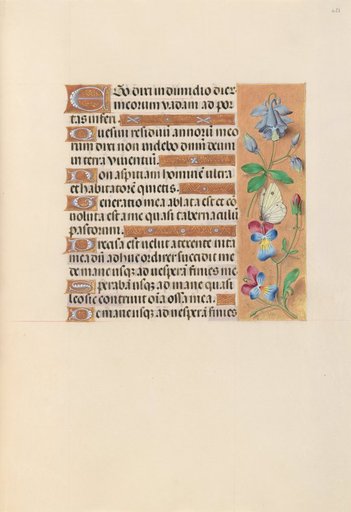 Ego dixi in dimidio dier
meorum vadam ad por
tas inferi.
Quesivi residuū annorū meo
rum dixi non videbo dūm deum
in terra viventiū.
Non aspiciam hominē ultra
et habitatorē quietis.
Generatio mea ablata est et cō
voluta est a me quasi tabernaculū
pastorum.
Precisa est velut a texente vita
mea dū adhuc ordirer succidit me
de mane usq; ad vesperā finies me
Sperabā usq; ad mane quasi
leo sic contrivit oīa ossa mea.
De mane usq; ad vesperā finies